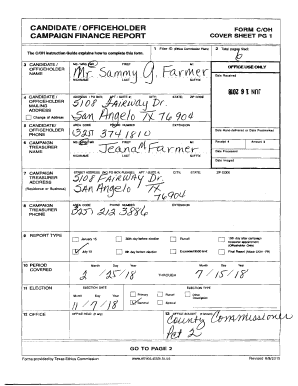 CANDIDATE / OFFICEHOLDER
CAMPAIGN FINANCE REPORT
FORM C/OH
COVER SHEET PG 1
The C/OH Instruction Guide explains how to complete this form.
1 Filer ID (Ethics Commission Filers)
2 Total pages filed:
6
3 CANDIDATE / OFFICEHOLDER NAME
MS / MRS / MR FIRST MI
Mr. Sammy G. Farmer
NICKNAME LAST SUFFIX
OFFICE USE ONLY
Date Received
4 CANDIDATE / OFFICEHOLDER MAILING ADDRESS
Change of Address
ADDRESS / PO BOX; APT / SUITE #; CITY; STATE; ZIP CODE
5108 Fairway Dr.
San Angelo TX 76904
5 CANDIDATE/ OFFICEHOLDER PHONE
AREA CODE PHONE NUMBER EXTENSION
(325) 374 1810
Date Hand-delivered or Date Postmarked
6 CAMPAIGN TREASURER NAME
MS / MRS / MR FIRST MI
Jeana M Farmer
NICKNAME LAST SUFFIX
Receipt # Amount $
Date Processed
Date Imaged
7 CAMPAIGN TREASURER ADDRESS
(Residence or Business)
STREET ADDRESS (NO PO BOX PLEASE); APT / SUITE #; CITY; STATE; ZIP CODE
5108 FAIRWAY Dr.
San Angelo TX
76904
8 CAMPAIGN TREASURER PHONE
AREA CODE PHONE NUMBER EXTENSION
(325) 212 3886
9 REPORT TYPE
January 15
30th day before election
Runoff
15th day after campaign treasurer appointment (Officeholder Only)
July 15
8th day before election
Exceeded $500 limit
Final Report (Attach C/OH - FR)
10 PERIOD COVERED
Month Day Year
2 / 25 / 18 THROUGH 7 / 15 / 18
11 ELECTION
ELECTION DATE
Month Day Year
11 / 7 / 18
ELECTION TYPE
Primary
Runoff
Other Description
General
Special
12 OFFICE
OFFICE HELD (if any)
13 OFFICE SOUGHT (if known)
County Commissioner
Pct 2
GO TO PAGE 2
Forms provided by Texas Ethics Commission
www.ethics.state.tx.us
Revised 9/8/2015